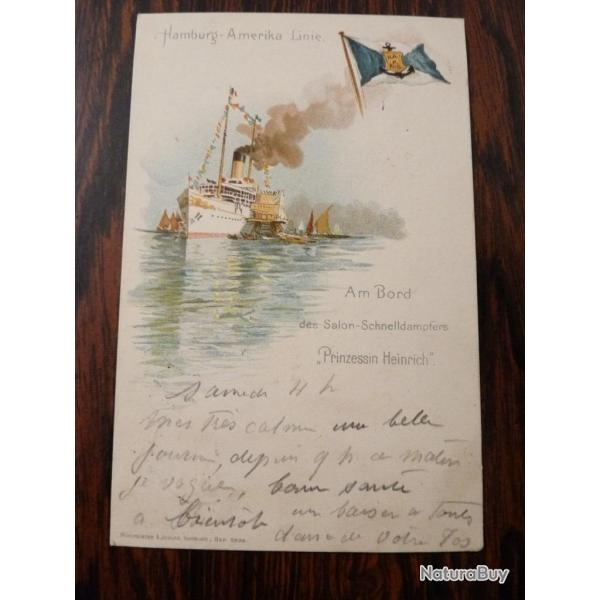 Hamburg-Amerika Linie.
Am Bord
des Salon-Schnelldampfers
„Prinzessin Heinrich".
Samedi 4 h
mer très calme une belle
journée, depuis 9 h. ce matin
je vogue, bonne santé
à bientôt un baiser à toutes
dans de votre
Mühlmeister & Johler, Hamburg
NaturaBuy